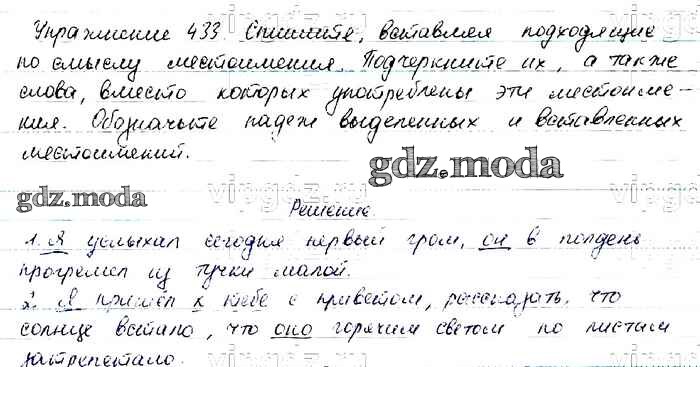 Упражнение 433. Спишите, вставляя подходящие
по смыслу местоимения. Подчеркните их, а также
слова, вместо которых употреблены эти местоиме-
ния. Обозначьте падеж выделенных и вставленных
местоимений.
gdz.moda
gdz.moda
Решение.
1. Я услыхал сегодня первый гром, он в полдень
прогремел из тучки малой.
2. Я пришёл к тебе с приветом, рассказать, что
солнце встало, что оно горячим светом по листам
затрепетало.